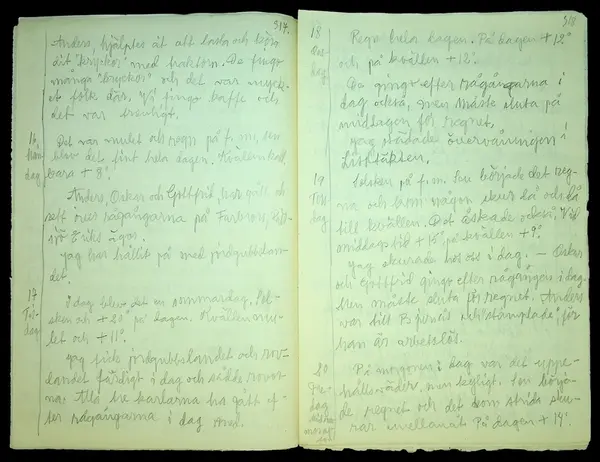 317.
Anders, hjälptes åt att lasta och köra
dit "kryckor" med traktorn. De fingo
många "kryckor" och det var mycket
folk där. Vi fingo kaffe och
det var trevligt.
16
Mån
dag
Det var mulet och regn på f.m., sen
blev det fint hela dagen. Kvällen kall,
bara + 8°.
Anders, Oskar och Gottfrid, har gått och
sett över rågångarna på Farbror,
sjö Eriks ägor.
Jag har hållit på med jordgubbslan-
det.
17
Tis-
dag
I dag blev det en sommardag. Sol-
sken och + 20° på dagen. Kvällen mu-
let och + 11°.
Jag fick jordgubbslandet och rov-
landet färdigt i dag och sådde rovor-
na. Alla tre karlarna ha gått ef-
ter rågångarna i dag
318
18
Ons
dag
Regn hela dagen. På dagen + 12°
och på kvällen + 12°.
De gingo efter rågångarna i
dag också, men måste sluta på
middagen för regnet.
Jag städade övervåningen i
19
Tors
dag
Solsken på f.m. Sen började det reg-
na och kom någon skur då och då
till kvällen. Det åskade också. Vid
middagstid + 15°, på kvällen + 9°.
Jag skurade hos oss i dag. — Oskar
och Gottfrid gingo efter rågången i dag.
Men måste sluta för regnet. Anders
var till Björnäs och "stämplade" för
han är arbetslös.
20
Fre-
dag
På morgonen i dag var det uppe-
hållsväder, men byigt. Sen börja-
de regnet och det kom strida sku-
rar emellanåt. På dagen + 14°.